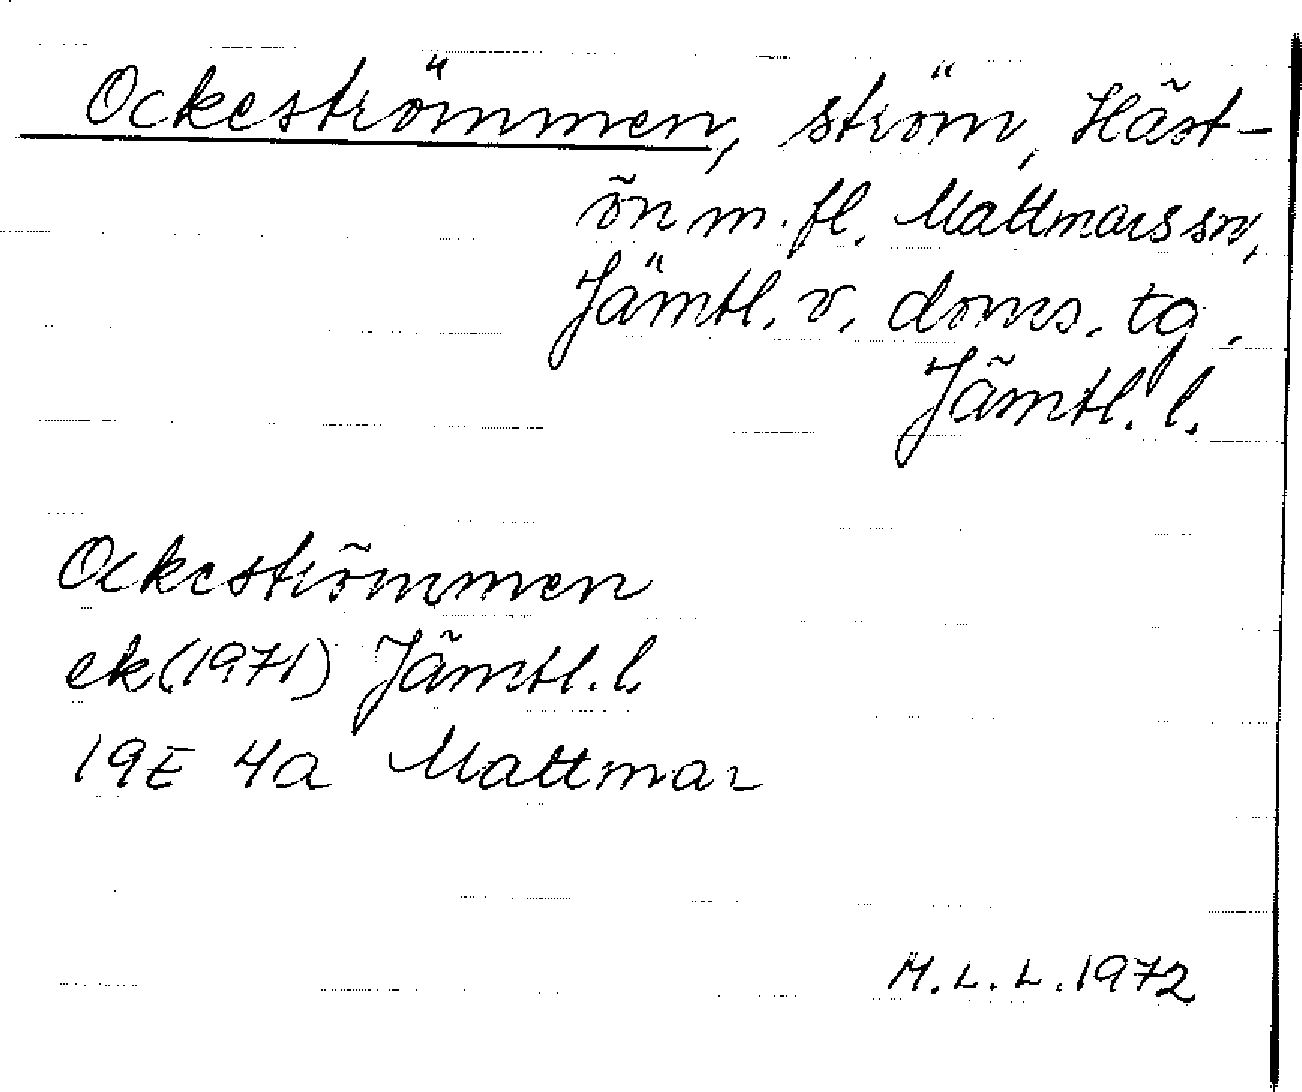 Ockeströmmen, ström, Häst-
ön m. fl. Mattmars sn,
Jämtl. v. doms. tg.
Jämtl. l.
Ockeströmmen
ek (1971) Jämtl. l.
19E 4a Mattmar
M.L.L. 1972